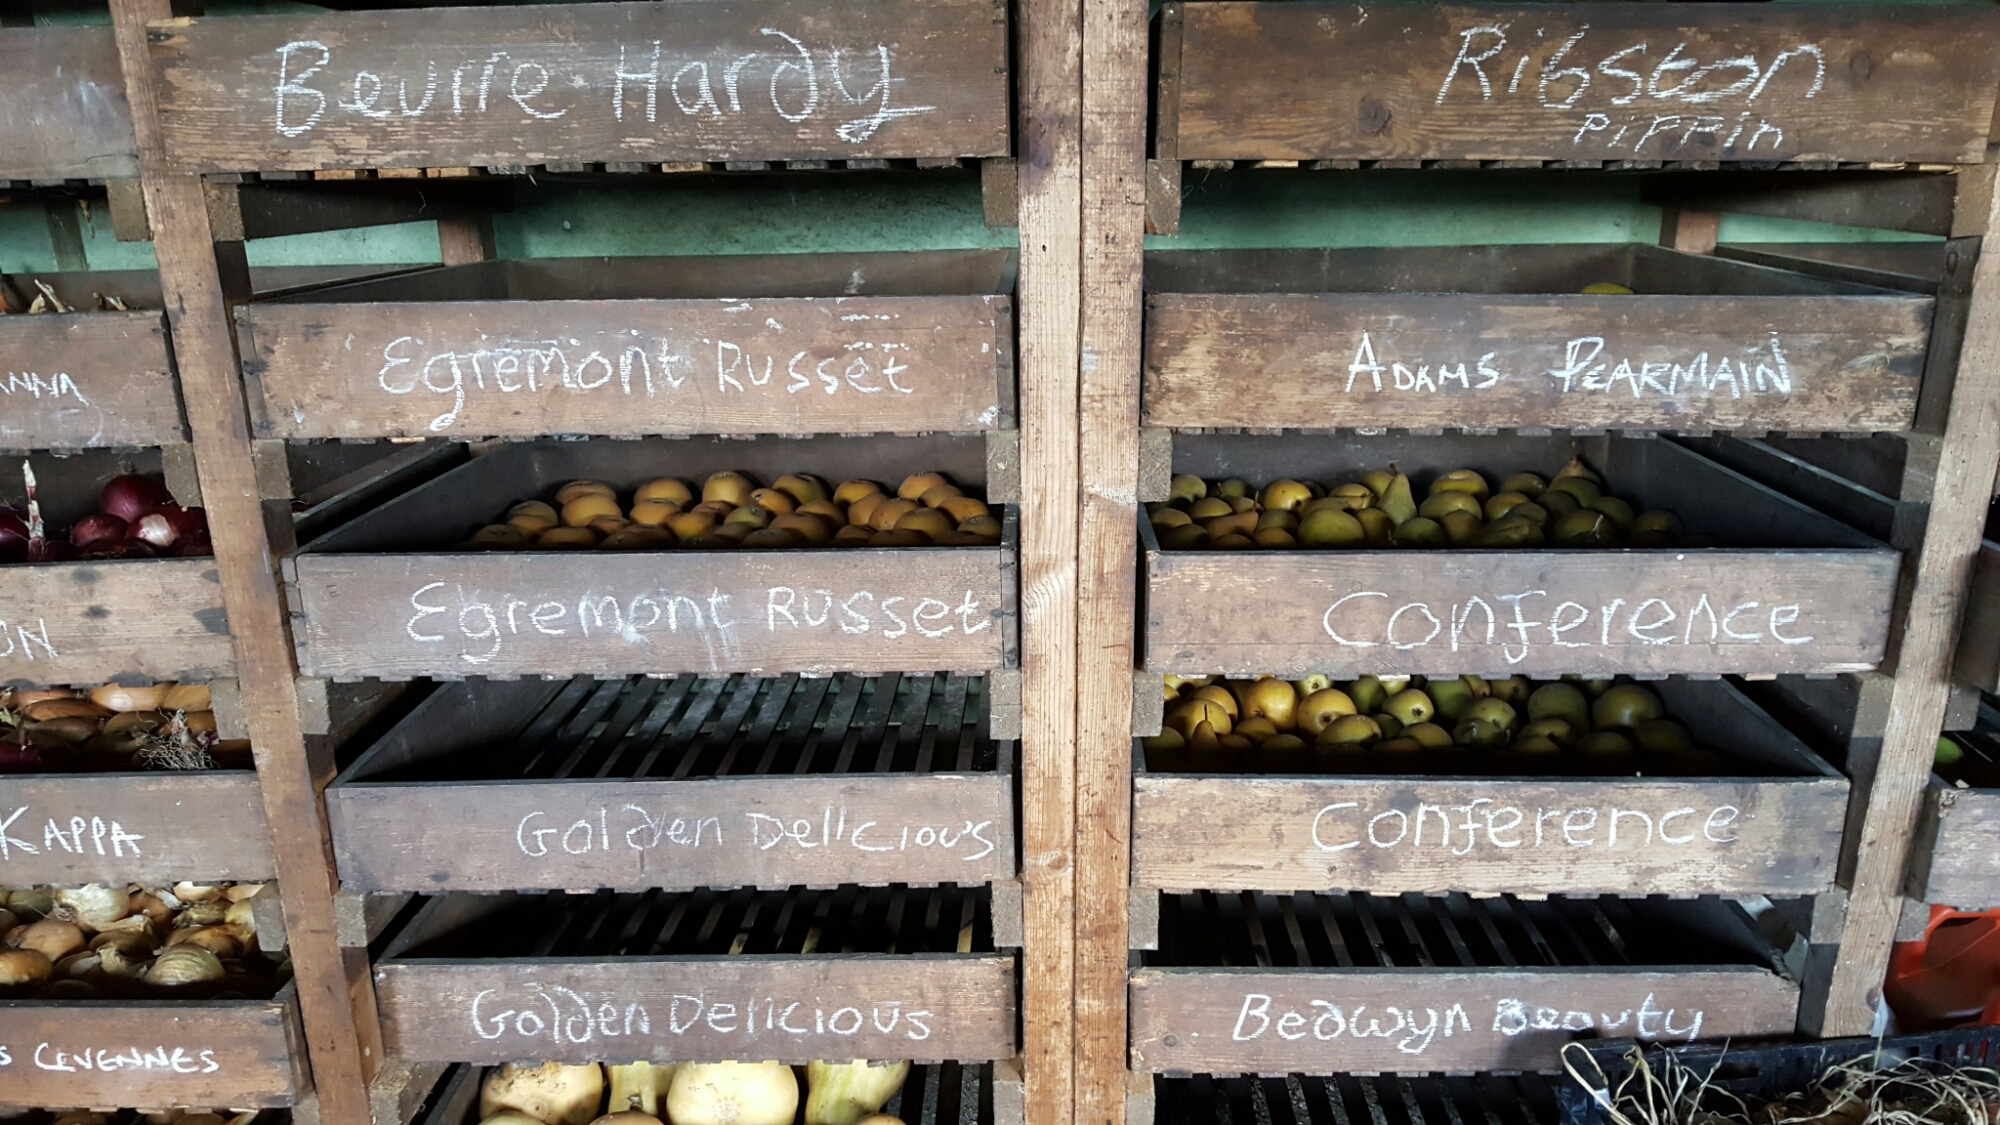 Beurre Hardy
Ribston
Pippin
Egremont Russet
Adams Pearmain
Egremont Russet
Conference
Golden Delicious
Conference
Golden Delicious
Bedwyn Beauty
KAPPA
CEVENNES